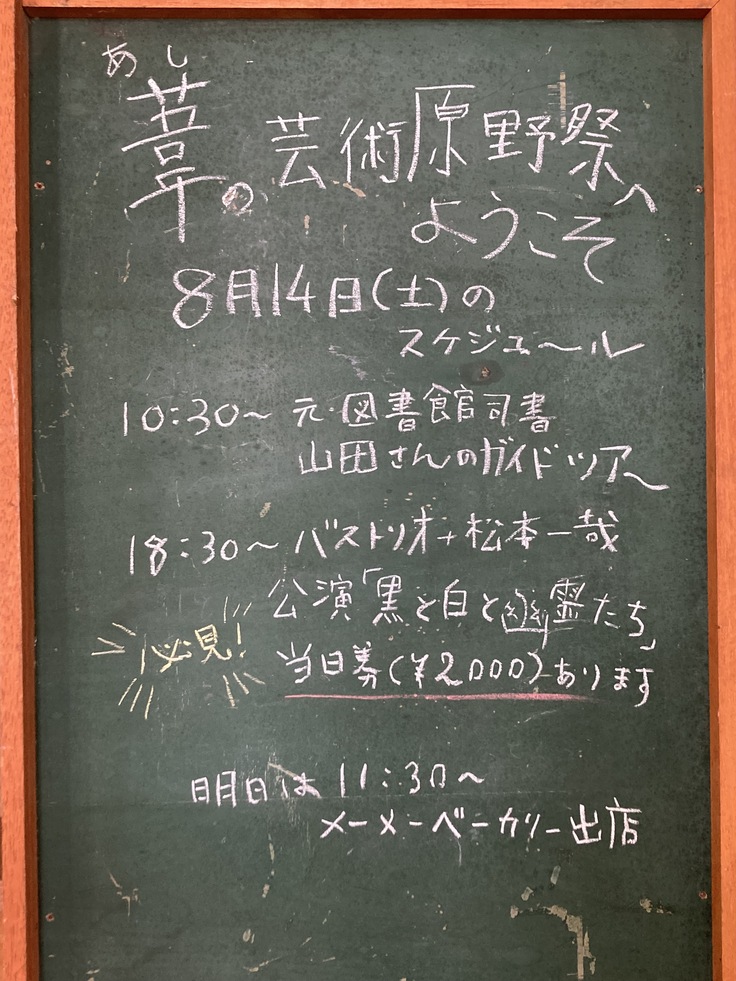 あし
葦の芸術原野祭へ
ようこそ
8月14日(土)の
スケジュール
10:30〜 元・図書館司書
山田さんのガイドツアー
18:30〜 バストリオ+松本一哉
公演「黒と白と幽霊たち」
必見!
当日券(¥2000)あります
明日は 11:30〜
メーメーベーカリー出店